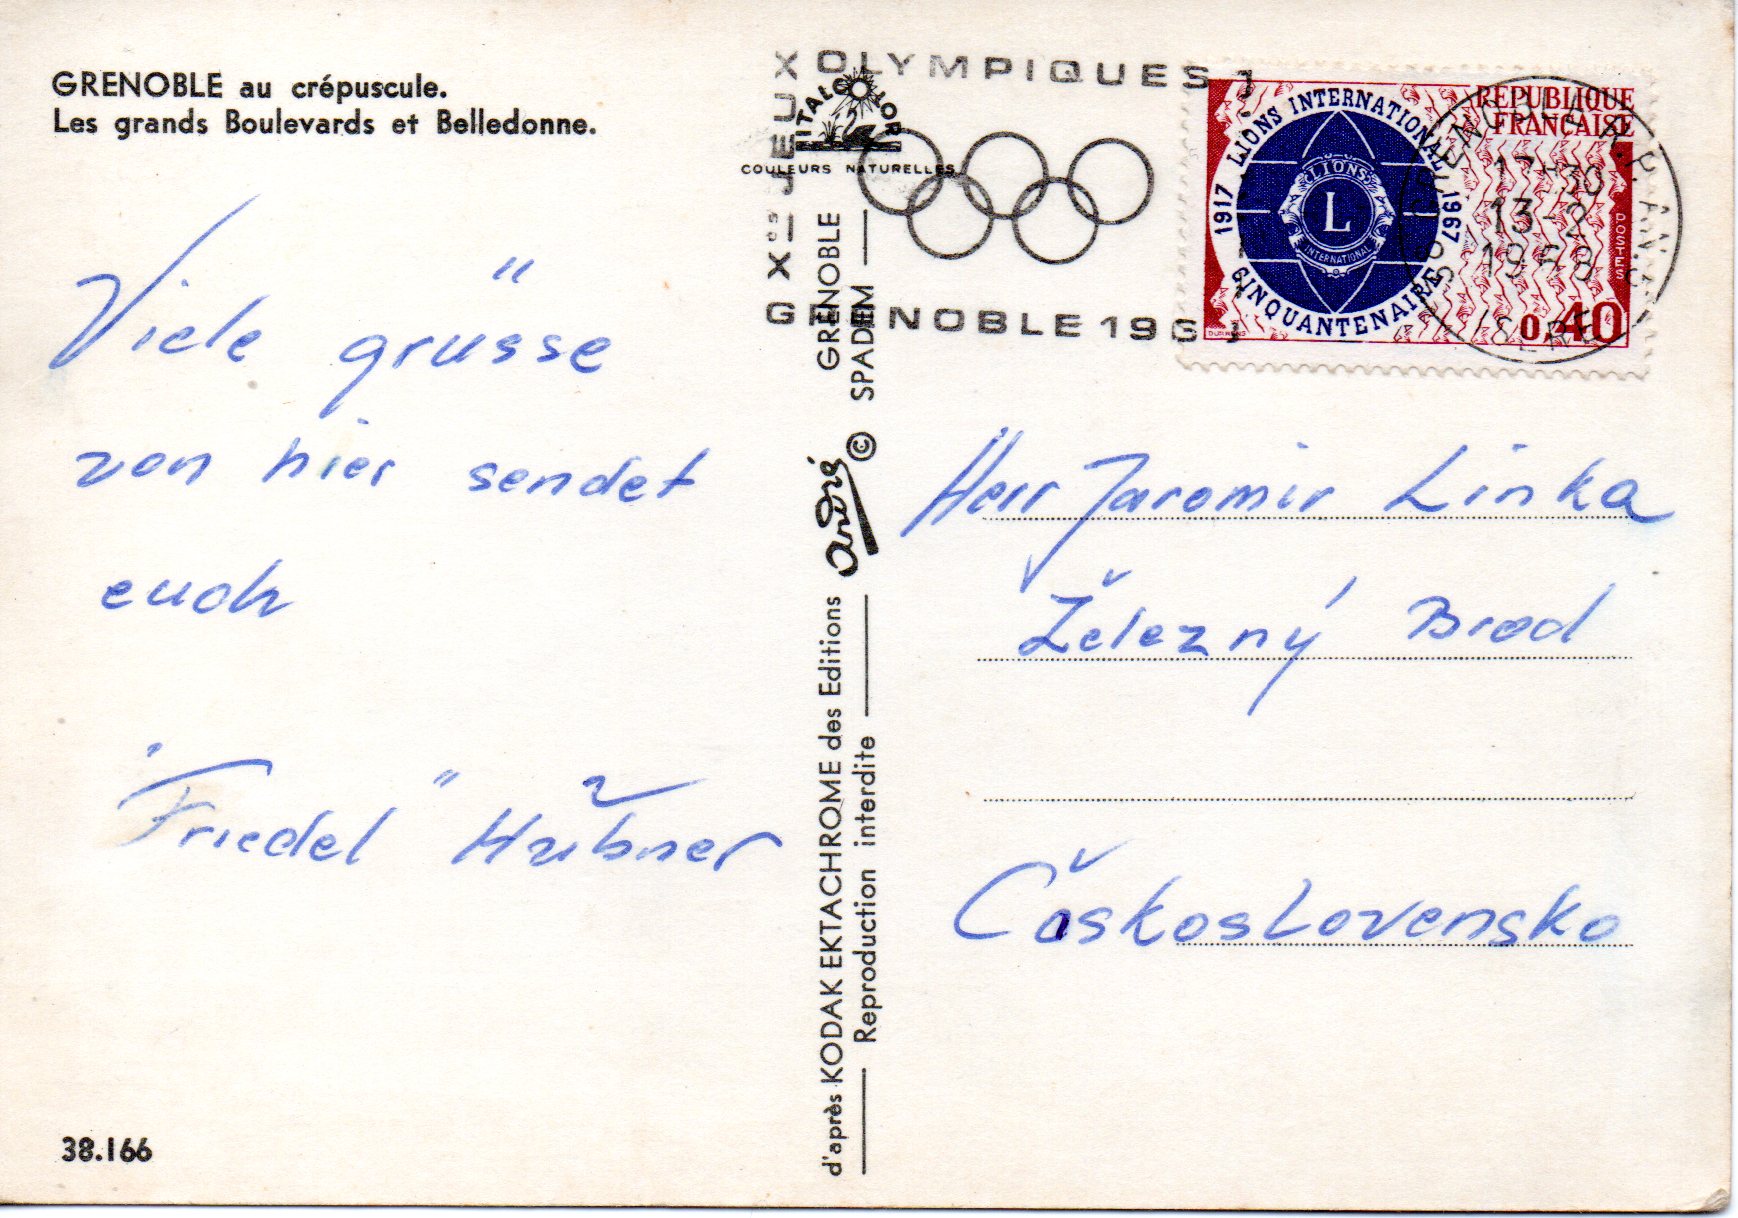 GRENOBLE au crépuscule.
Les grands Boulevards et Belledonne.
Viele grüsse
von hier sendet
euch
"Friedel" Hübner
38.166
Xes JEUX OLYMPIQUES
GRENOBLE 196
ITALCOLOR
COULEURS NATURELLES
d'après KODAK EKTACHROME des Editions André GRENOBLE
Reproduction interdite © SPADEM
1917 LIONS INTERNATIONAL 1967
CINQUANTENAIRE
LIONS
L
INTERNATIONAL
REPUBLIQUE
FRANÇAISE
POSTES
0,40
GRENOBLE R.P.
17H30
13-2
1968
ISERE
Herr Jaromir Linka
Železný Brod
Československo